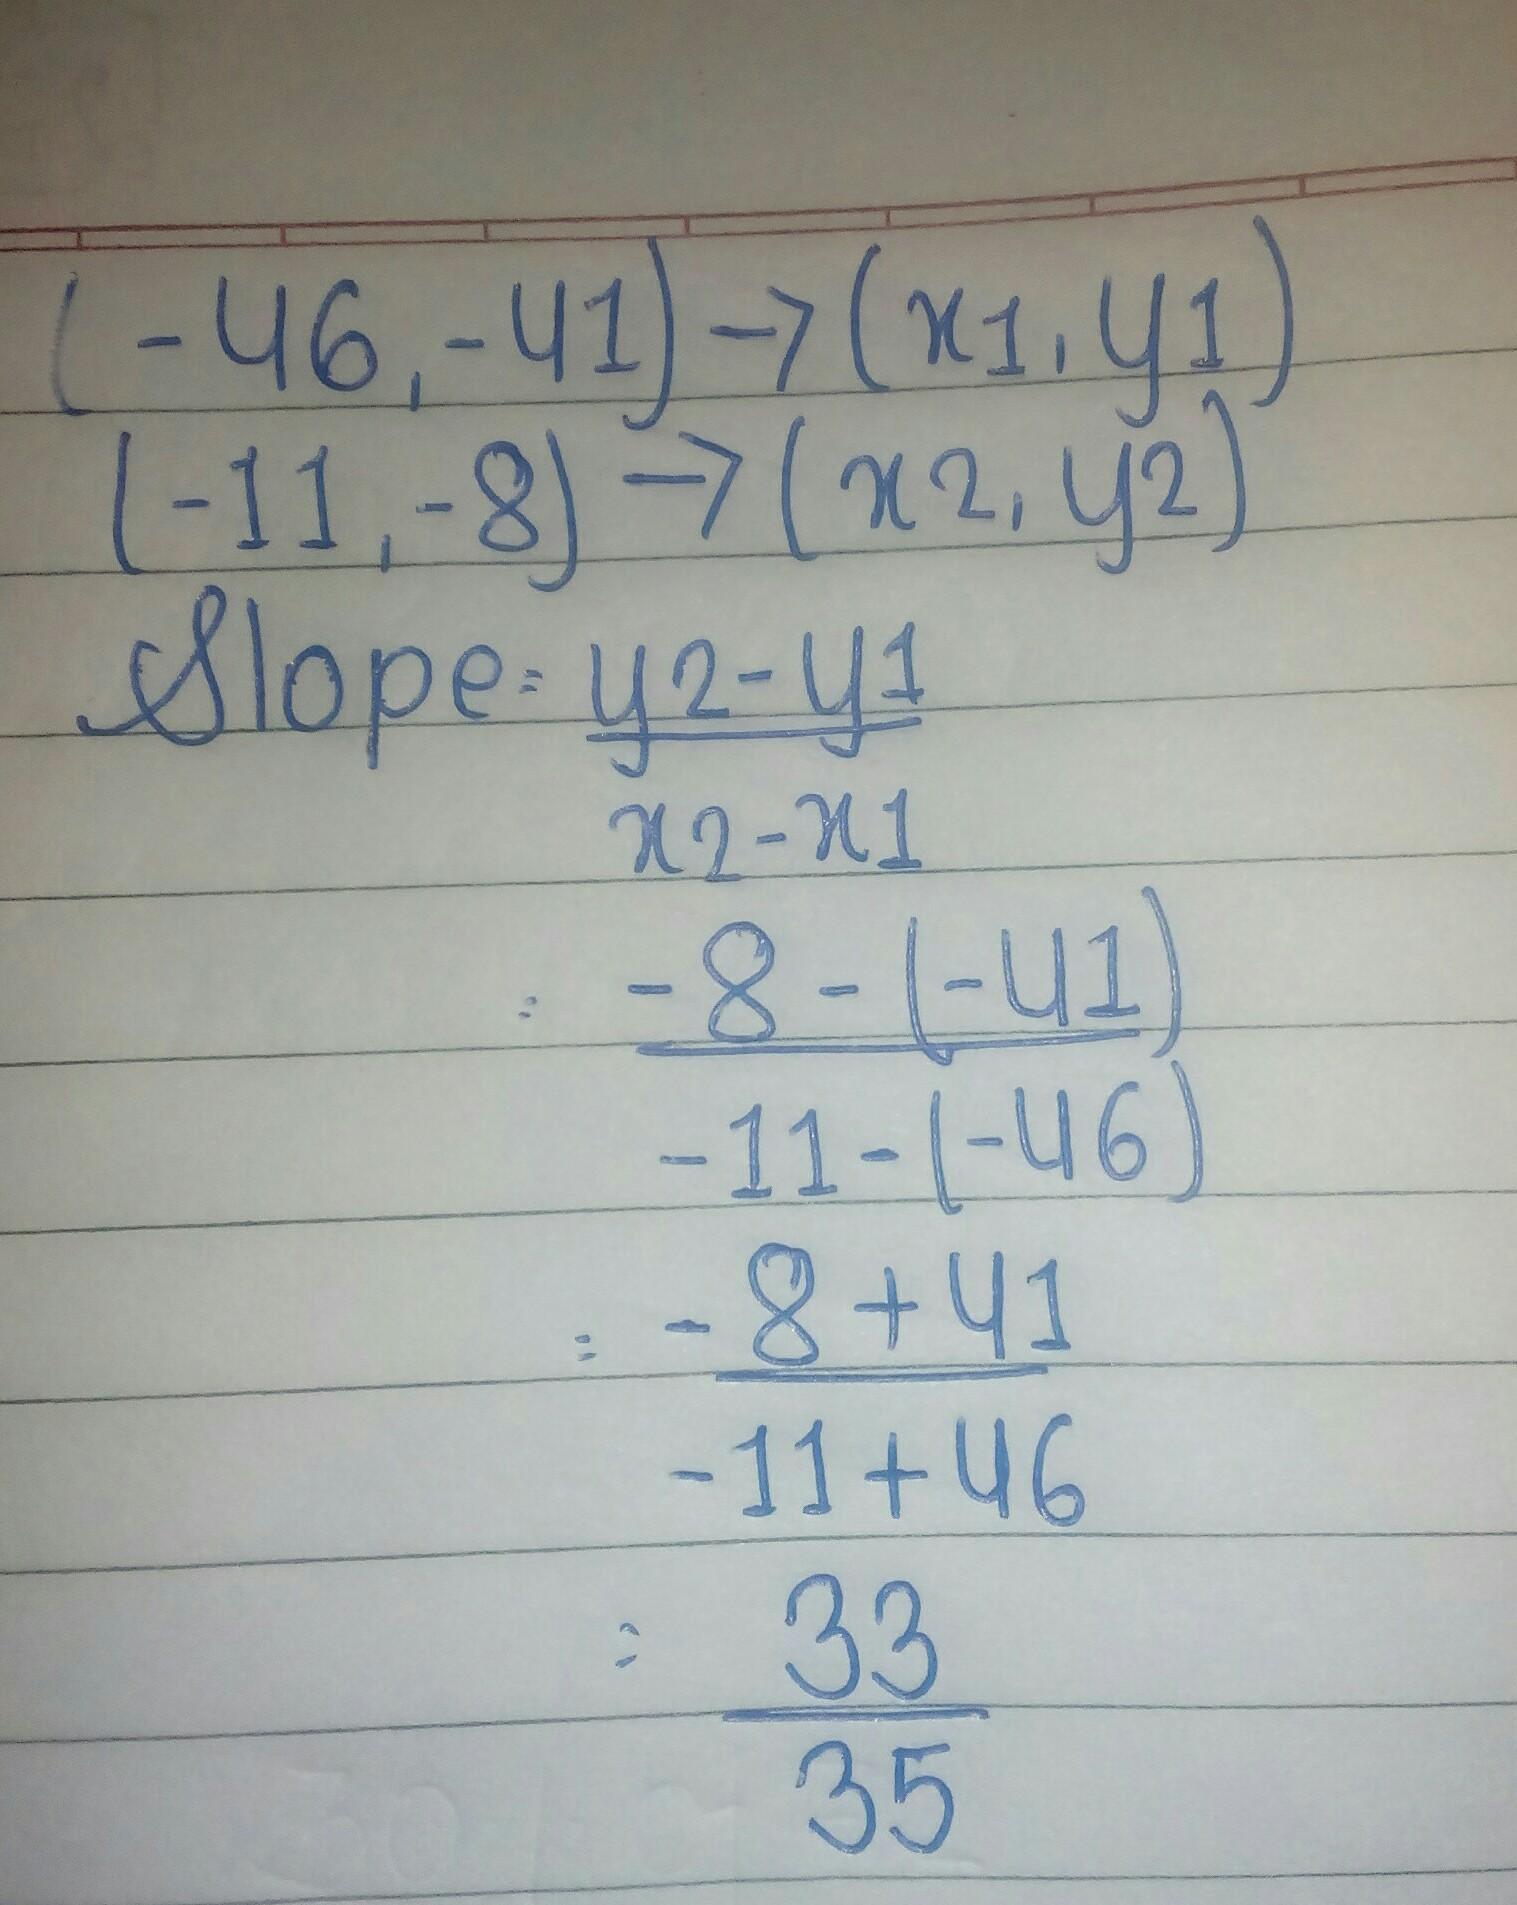 (-46,-41)→(x1,y1)
(-11,-8)→(x2,y2)
Slope=y2-y1
x2-x1
= -8-(-41)
-11-(-46)
= -8+41
-11+46
= 33
35